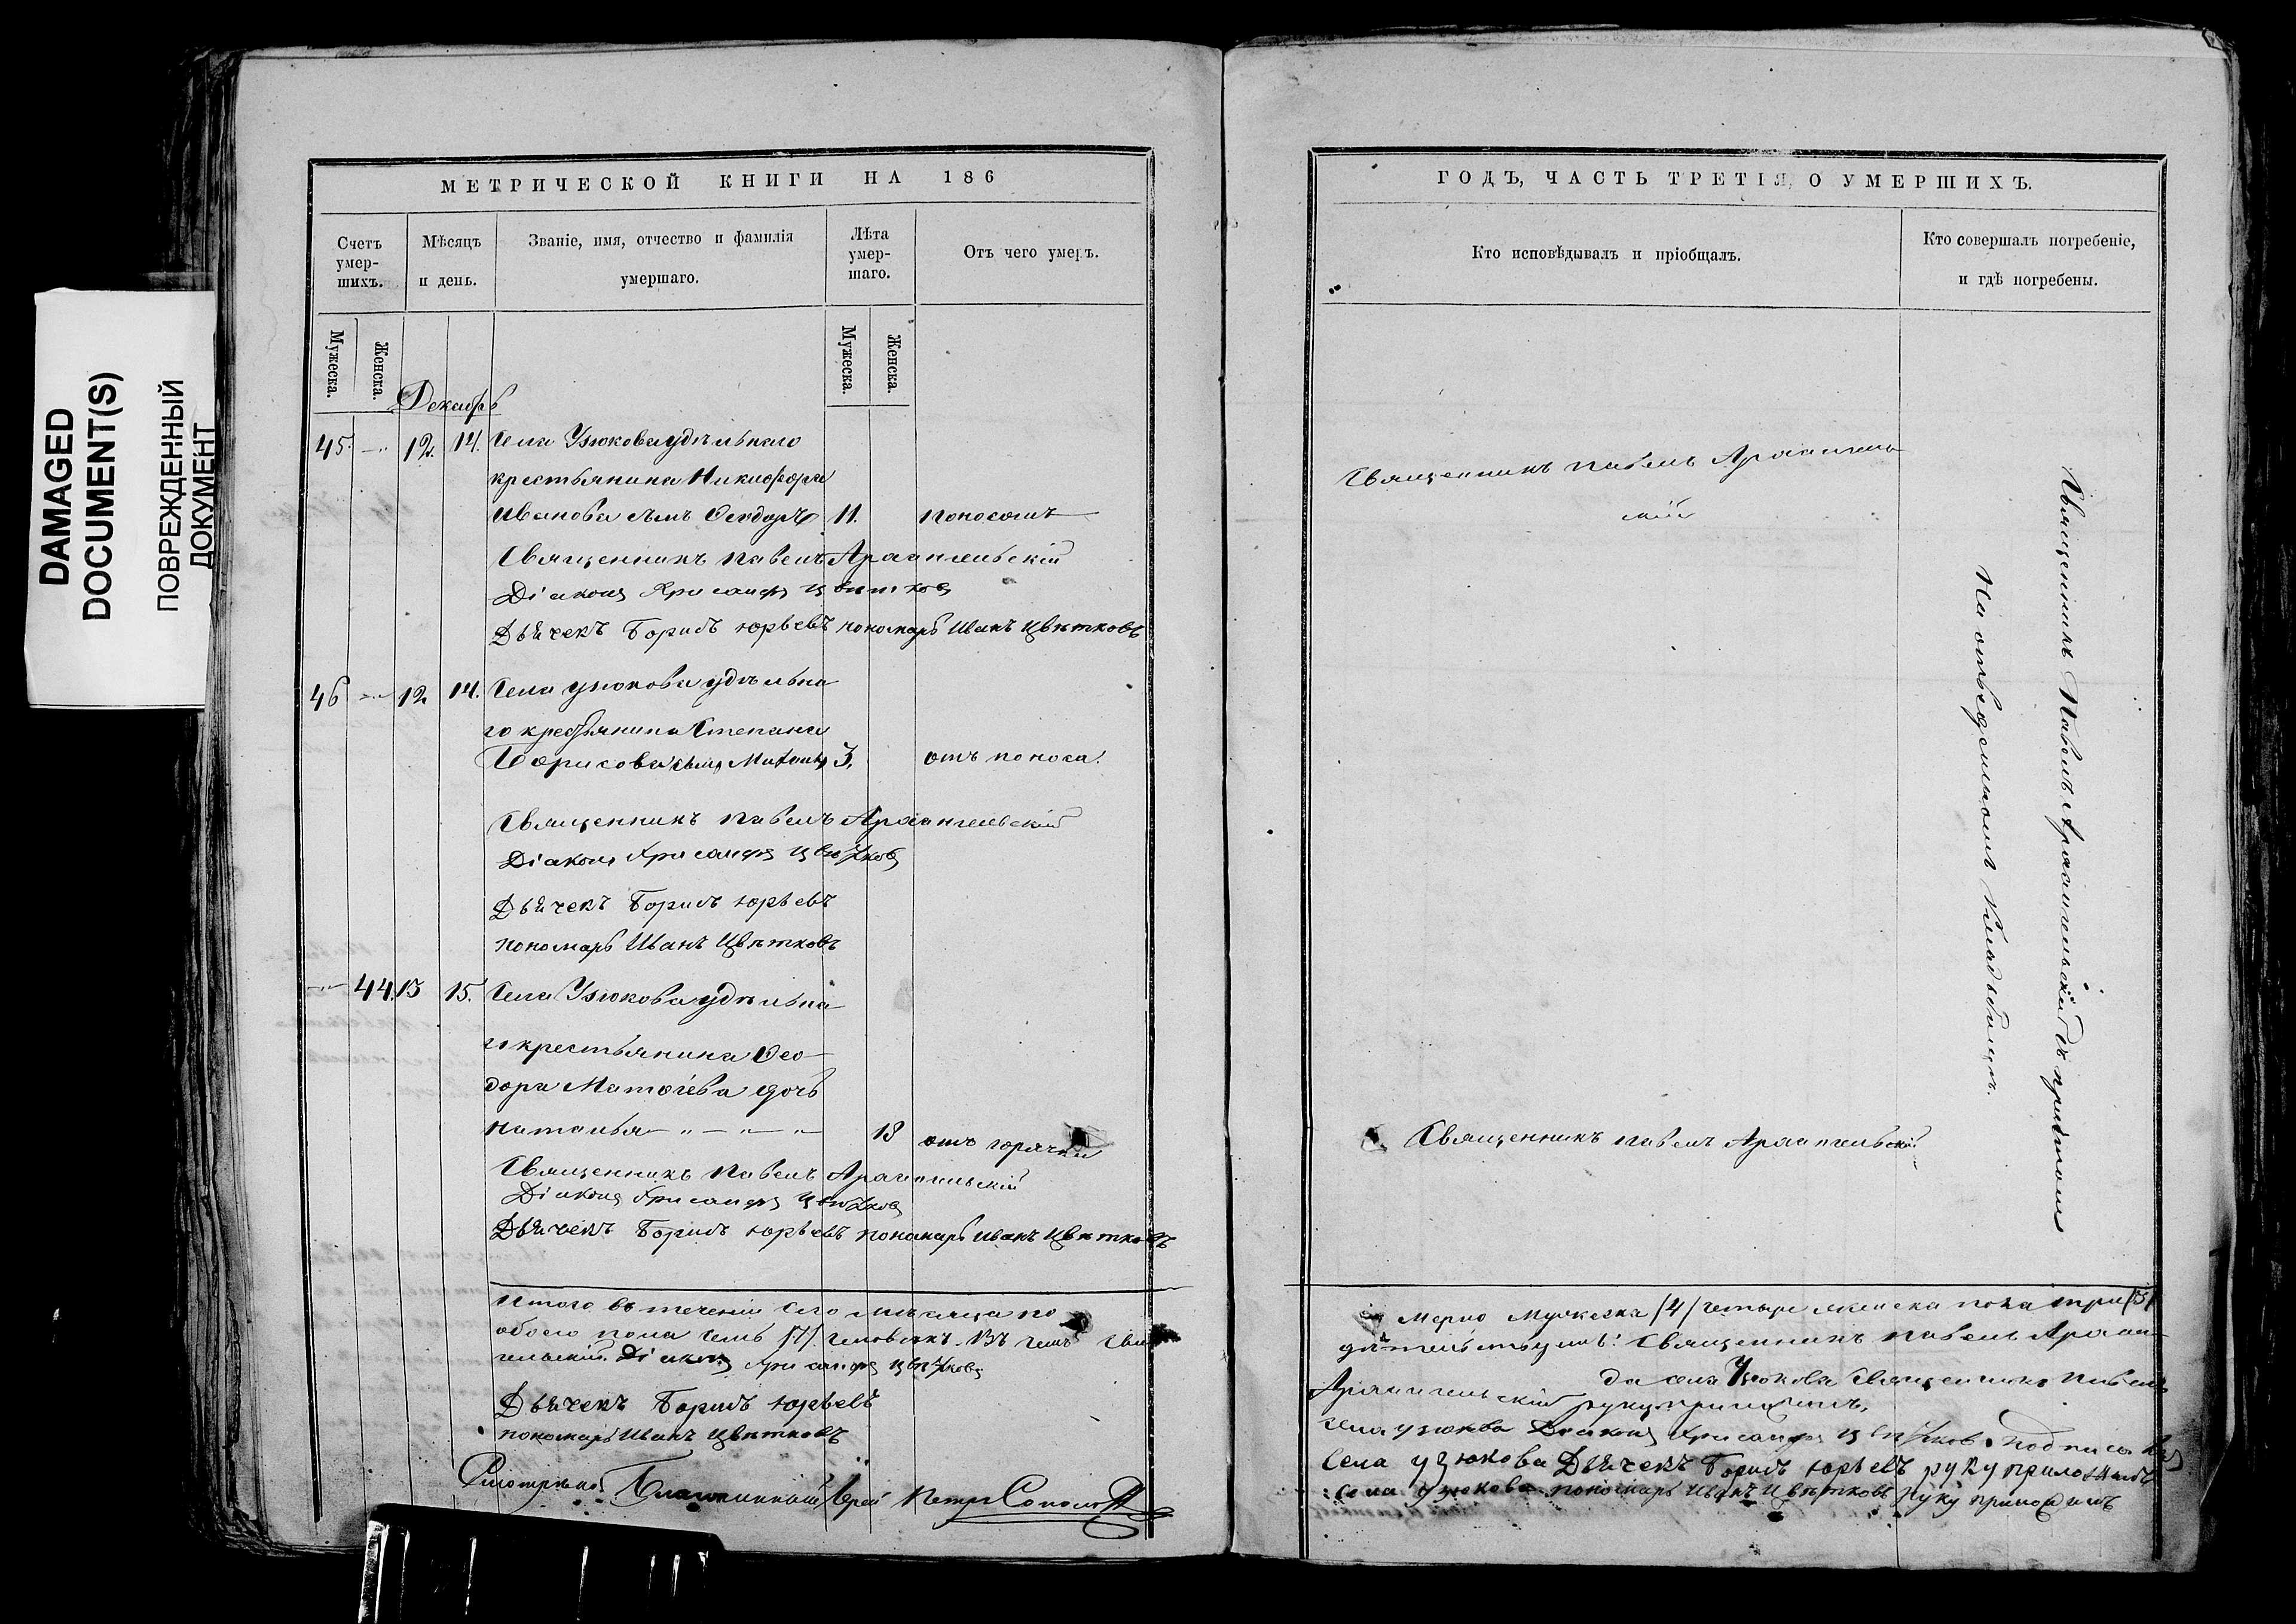 DAMAGED
DOCUMENT(S)
ПОВРЕЖДЕННЫЙ
ДОКУМЕНТ
МЕТРИЧЕСКОЙ КНИГИ НА 186
Счетъ умер-шихъ.
Мѣсяцъ и день.
Званіе, имя, отчество и фамилія умершаго.
Лѣта умер-шаго.
Отъ чего умеръ.
Мужеска.
Женска.
Мужеска.
Женска.
Декабрь
45. 12. 14. Села Узюкова удѣльнаго
крестьянина Никифора
Иванова сынъ Ѳеодоръ 11. поносомъ
Священникъ Павелъ Архангельскій
Діаконъ Хрисанфъ Цвѣтковъ
Дьячекъ Борисъ Юрьевъ пономарь Иванъ Цвѣтковъ
46 12 14. Села Узюкова удѣльна
го крестьянина Степана
Борисова сынъ 3. отъ поноса.
Священникъ Павелъ Архангельскій
Діаконъ Хрисанфъ Цвѣтковъ
Дьячекъ Борисъ Юрьевъ
пономарь Иванъ Цвѣтковъ
44. 13 15. Села Узюкова удѣльна
го крестьянина Ѳео
дора Матѳѣева дочь
Наталья 18 отъ горячки
Священникъ Павелъ Архангельскій
Діаконъ Хрисанфъ Цвѣтковъ
Дьячекъ Борисъ Юрьевъ пономарь Иванъ Цвѣтковъ
Итого въ теченіи сего мѣсяца по
обоего пола семь /7/ человѣкъ. Въ чемъ сви
гельскій. Діаконъ Хрисанфъ Цвѣтковъ
Дьячекъ Борисъ Юрьевъ
пономарь Иванъ Цвѣтковъ
Смотрѣлъ Благочинный Іерей Петръ Соколовъ
ГОДЪ, ЧАСТЬ ТРЕТІЯ, О УМЕРШИХЪ.
Кто исповѣдывалъ и пріобщалъ.
Кто совершалъ погребеніе, и гдѣ погребены.
Священникъ Павелъ Архангель
скій
Священникъ Павелъ Архангельскій съ причтомъ
На отведенномъ кладбищѣ.
Священникъ Павелъ Архангельскій
мерло мужеска /4/ четыре женска пола три /3/
дѣтельствуемъ: Священникъ Павелъ Архан
да села Узюкова Священникъ Павелъ
Архангельскій руку приложилъ.
Села Узюкова Діаконъ Хрисанфъ Цвѣтковъ подписался
Села Узюкова Дьячекъ Борисъ Юрьевъ руку приложилъ
Села Узюкова пономарь Иванъ Цвѣтковъ руку приложилъ